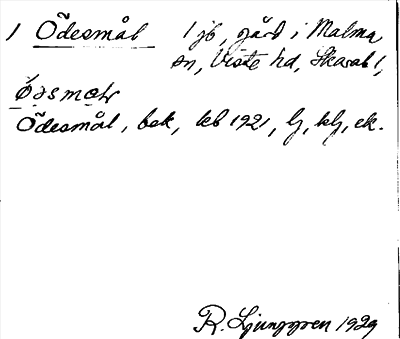 1 Ödesmål 1 jb, gård i Malma
sn, Viste hd, Skarab l,
Ödesmål, bek, kb 1921, lj, klj, ek.
R. Ljunggren 1929